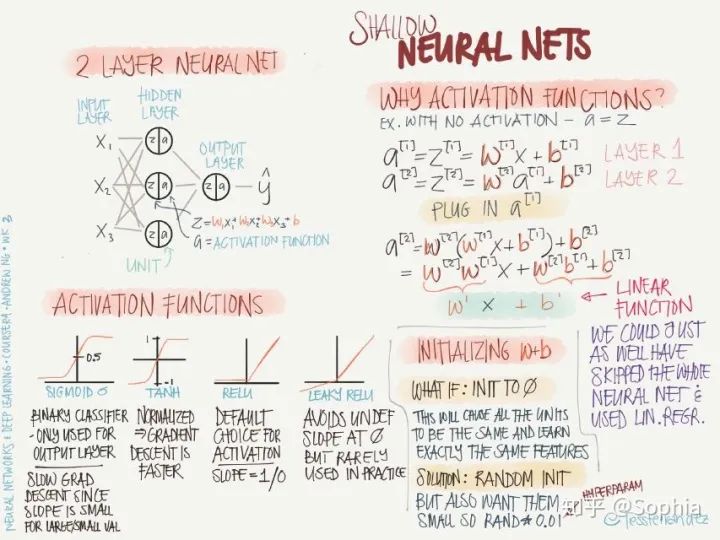 SHALLOW
NEURAL NETS
2 LAYER NEURAL NET
INPUT
LAYER
HIDDEN
LAYER
OUTPUT
LAYER
X₁
X₂
X₃
z|a
z|a
z|a
z|a
ŷ
Z=W₁X₁+W₂X₂+W₃X₃+b
a=ACTIVATION FUNCTION
UNIT
ACTIVATION FUNCTIONS
0.5
SIGMOID σ
BINARY CLASSIFIER
- ONLY USED FOR
OUTPUT LAYER
SLOW GRAD
DESCENT SINCE
SLOPE IS SMALL
FOR LARGE/SMALL VAL
1
-1
TANH
NORMALIZED
⇒ GRADIENT
DESCENT IS
FASTER
RELU
DEFAULT
CHOICE FOR
ACTIVATION
SLOPE=1/0
LEAKY RELU
AVOIDS UNDEF
SLOPE AT Ø
BUT RARELY
USED IN PRACTICE
WHY ACTIVATION FUNCTIONS?
EX. WITH NO ACTIVATION - a=Z
a^[1]=Z^[1]=W^[1]X+b^[1] LAYER 1
a^[2]=Z^[2]=W^[2]a^[1]+b^[2] LAYER 2
PLUG IN a^[1]
a^[2]=W^[2](W^[1]X+b^[1])+b^[2]
=W^[2]W^[1]X+W^[2]b^[1]+b^[2]
W' X + b'
← LINEAR
FUNCTION
WE COULD JUST
AS WELL HAVE
SKIPPED THE WHOLE
NEURAL NET &
USED LIN. REGR.
INITIALIZING W+b
WHAT IF: INIT TO Ø
THIS WILL CAUSE ALL THE UNITS
TO BE THE SAME AND LEARN
EXACTLY THE SAME FEATURES
SOLUTION: RANDOM INIT
BUT ALSO WANT THEM
SMALL SO RAND * 0.01
HYPERPARAM
知乎 @Sophia
@jessfernandez
NEURAL NETWORKS & DEEP LEARNING • COURSERA • ANDREW NG • WK 3